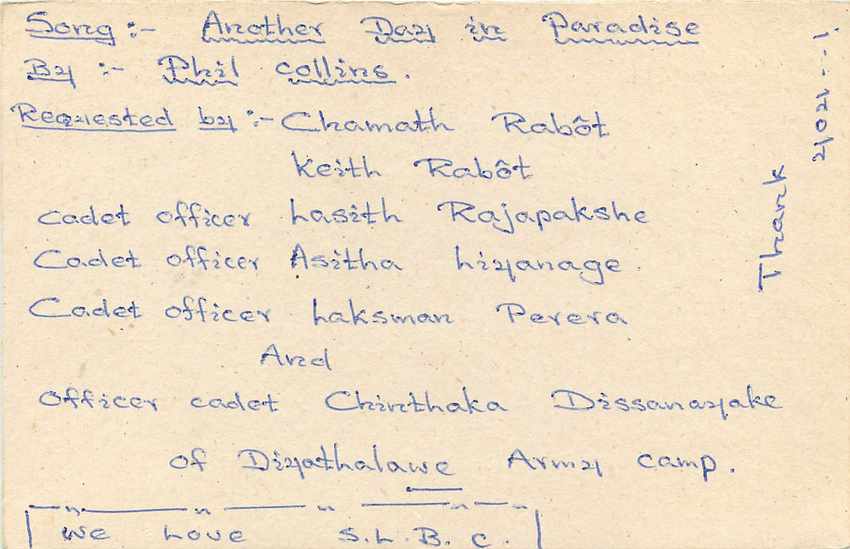 Song :- Another Day in Paradise
By :- Phil collins.
Requested by :- Chamath Rabôt
Keith Rabôt
cadet officer Lasith Rajapakshe
Cadet officer Asitha Liyanage.
Cadet officer Laksman Perera
And
Officer cadet Chinthaka Dissanayake
of Diyathalawe Army camp.
We Love S.L.B.C.
Thank you - - !